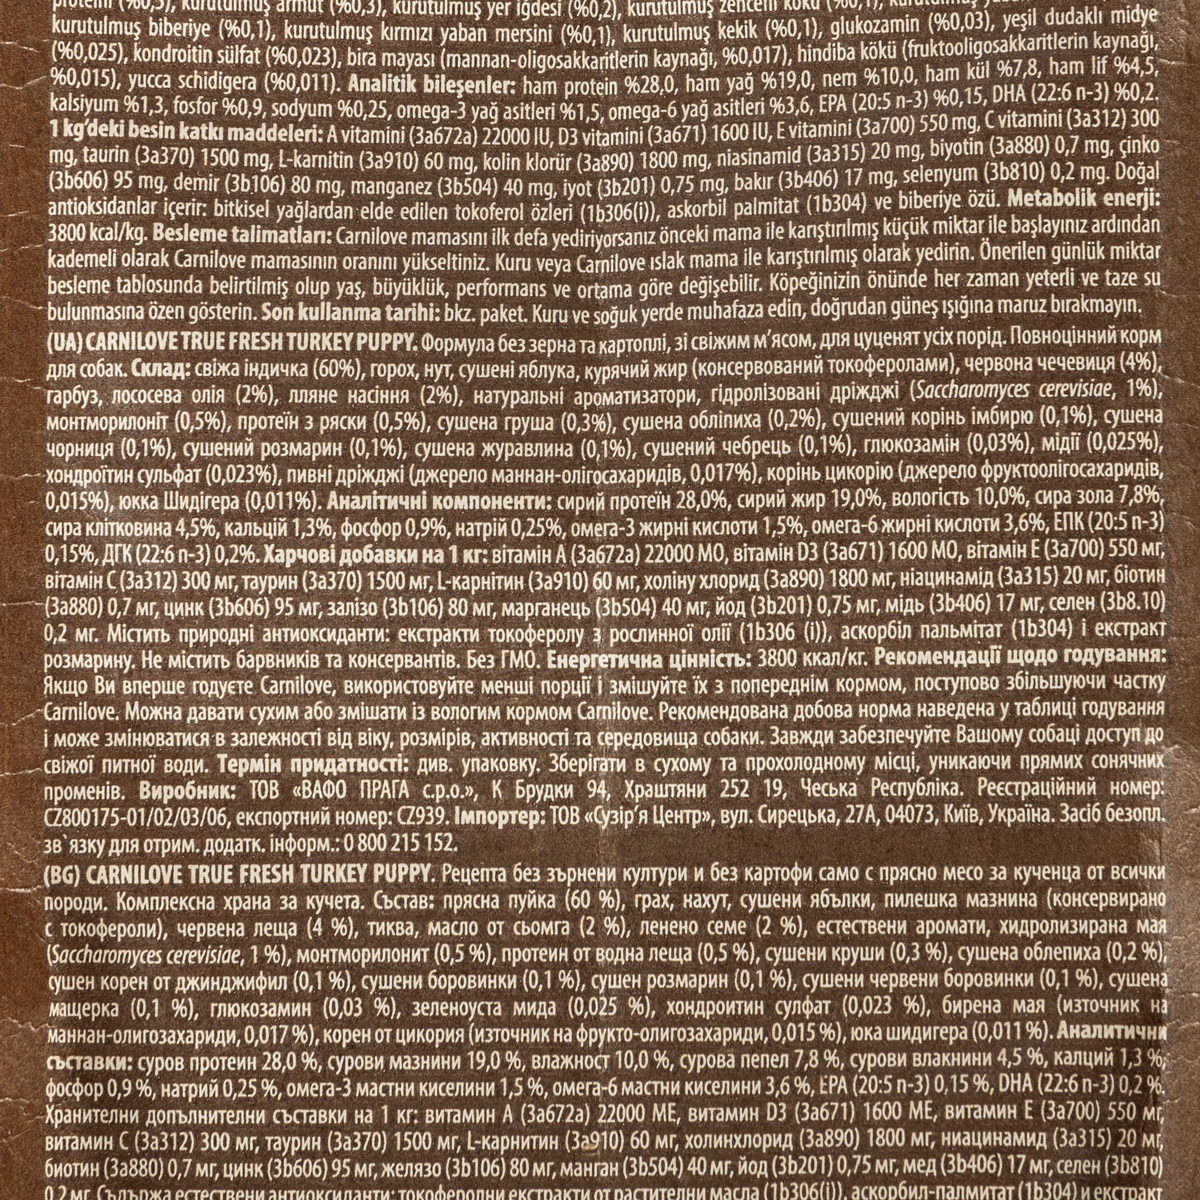 kurutulmuş armut (%0,3), kurutulmuş yer iğdesi (%0,2), kurutulmuş zencefil kökü (%0,1),
kurutulmuş biberiye (%0,1), kurutulmuş kırmızı yaban mersini (%0,1), kurutulmuş kekik (%0,1), glukozamin (%0,03), yeşil dudaklı midye
(%0,025), kondroitin sülfat (%0,023), bira mayası (mannan-oligosakkaritlerin kaynağı, %0,017), hindiba kökü (fruktooligosakkaritlerin kaynağı,
%0,015), yucca schidigera (%0,011). Analitik bileşenler: ham protein %28,0, ham yağ %19,0, nem %10,0, ham kül %7,8, ham lif %4,5,
kalsiyum %1,3, fosfor %0,9, sodyum %0,25, omega-3 yağ asitleri %1,5, omega-6 yağ asitleri %3,6, EPA (20:5 n-3) %0,15, DHA (22:6 n-3) %0,2.
1 kg'deki besin katkı maddeleri: A vitamini (3a672a) 22000 IU, D3 vitamini (3a671) 1600 IU, E vitamini (3a700) 550 mg, C vitamini (3a312) 300
mg, taurin (3a370) 1500 mg, L-karnitin (3a910) 60 mg, kolin klorür (3a890) 1800 mg, niasinamid (3a315) 20 mg, biyotin (3a880) 0,7 mg, çinko
(3b606) 95 mg, demir (3b106) 80 mg, manganez (3b504) 40 mg, iyot (3b201) 0,75 mg, bakır (3b406) 17 mg, selenyum (3b810) 0,2 mg. Doğal
antioksidanlar içerir: bitkisel yağlardan elde edilen tokoferol özleri (1b306(i)), askorbil palmitat (1b304) ve biberiye özü. Metabolik enerji:
3800 kcal/kg. Besleme talimatları: Carnilove mamasını ilk defa yediriyorsanız önceki mama ile karıştırılmış küçük miktar ile başlayınız ardından
kademeli olarak Carnilove mamasının oranını yükseltiniz. Kuru veya Carnilove ıslak mama ile karıştırılmış olarak yedirin. Önerilen günlük miktar
besleme tablosunda belirtilmiş olup yaş, büyüklük, performans ve ortama göre değişebilir. Köpeğinizin önünde her zaman yeterli ve taze su
bulunmasına özen gösterin. Son kullanma tarihi: bkz. paket. Kuru ve soğuk yerde muhafaza edin, doğrudan güneş ışığına maruz bırakmayın.
(UA) CARNILOVE TRUE FRESH TURKEY PUPPY. Формула без зерна та картоплі, зі свіжим м'ясом, для цуценят усіх порід. Повноцінний корм
для собак. Склад: свіжа індичка (60%), горох, нут, сушені яблука, курячий жир (консервований токоферолами), червона чечевиця (4%),
гарбуз, лососева олія (2%), лляне насіння (2%), натуральні ароматизатори, гідролізовані дріжджі (Saccharomyces cerevisiae, 1%),
монтморилоніт (0,5%), протеїн з ряски (0,5%), сушена груша (0,3%), сушена обліпиха (0,2%), сушений корінь імбирю (0,1%), сушена
чорниця (0,1%), сушений розмарин (0,1%), сушена журавлина (0,1%), сушений чебрець (0,1%), глюкозамін (0,03%), мідії (0,025%),
хондроїтин сульфат (0,023%), пивні дріжджі (джерело маннан-олігосахаридів, 0,017%), корінь цикорію (джерело фруктоолігосахаридів,
0,015%), юкка Шидігера (0,011%). Аналітичні компоненти: сирий протеїн 28,0%, сирий жир 19,0%, вологість 10,0%, сира зола 7,8%,
сира клітковина 4,5%, кальцій 1,3%, фосфор 0,9%, натрій 0,25%, омега-3 жирні кислоти 1,5%, омега-6 жирні кислоти 3,6%, ЕПК (20:5 n-3)
0,15%, ДГК (22:6 n-3) 0,2%. Харчові добавки на 1 кг: вітамін А (3а672а) 22000 МО, вітамін D3 (3а671) 1600 МО, вітамін Е (3а700) 550 мг,
вітамін С (3а312) 300 мг, таурин (3а370) 1500 мг, L-карнітин (3а910) 60 мг, холіну хлорид (3а890) 1800 мг, ніацинамід (3а315) 20 мг, біотин
(3а880) 0,7 мг, цинк (3b606) 95 мг, залізо (3b106) 80 мг, марганець (3b504) 40 мг, йод (3b201) 0,75 мг, мідь (3b406) 17 мг, селен (3b8.10)
0,2 мг. Містить природні антиоксиданти: екстракти токоферолу з рослинної олії (1b306 (i)), аскорбіл пальмітат (1b304) і екстракт
розмарину. Не містить барвників та консервантів. Без ГМО. Енергетична цінність: 3800 ккал/кг. Рекомендації щодо годування:
Якщо Ви вперше годуєте Carnilove, використовуйте менші порції і змішуйте їх з попереднім кормом, поступово збільшуючи частку
Carnilove. Можна давати сухим або змішати із вологим кормом Carnilove. Рекомендована добова норма наведена у таблиці годування
і може змінюватися в залежності від віку, розмірів, активності та середовища собаки. Завжди забезпечуйте Вашому собаці доступ до
свіжої питної води. Термін придатності: див. упаковку. Зберігати в сухому та прохолодному місці, уникаючи прямих сонячних
променів. Виробник: ТОВ «ВАФО ПРАГА с.р.о.», К Брудки 94, Храштяни 252 19, Чеська Республіка. Реєстраційний номер:
CZ800175-01/02/03/06, експортний номер: CZ939. Імпортер: ТОВ «Сузір'я Центр», вул. Сирецька, 27А, 04073, Київ, Україна. Засіб безопл.
зв`язку для отрим. додатк. інформ.: 0 800 215 152.
(BG) CARNILOVE TRUE FRESH TURKEY PUPPY. Рецепта без зърнени култури и без картофи само с прясно месо за кученца от всички
породи. Комплексна храна за кучета. Състав: прясна пуйка (60 %), грах, нахут, сушени ябълки, пилешка мазнина (консервирано
с токофероли), червена леща (4 %), тиква, масло от сьомга (2 %), ленено семе (2 %), естествени аромати, хидролизирана мая
(Saccharomyces cerevisiae, 1 %), монтморилонит (0,5 %), протеин от водна леща (0,5 %), сушени круши (0,3 %), сушена облепиха (0,2 %),
сушен корен от джинджифил (0,1 %), сушени боровинки (0,1 %), сушен розмарин (0,1 %), сушени червени боровинки (0,1 %), сушена
мащерка (0,1 %), глюкозамин (0,03 %), зеленоуста мида (0,025 %), хондроитин сулфат (0,023 %), бирена мая (източник на
маннан-олигозахариди, 0,017 %), корен от цикория (източник на фрукто-олигозахариди, 0,015 %), юка шидигера (0,011 %). Аналитични
съставки: суров протеин 28,0 %, сурови мазнини 19,0 %, влажност 10,0 %, сурова пепел 7,8 %, сурови влакнини 4,5 %, калций 1,3 %,
фосфор 0,9 %, натрий 0,25 %, омега-3 мастни киселини 1,5 %, омега-6 мастни киселини 3,6 %, EPA (20:5 n-3) 0,15 %, DHA (22:6 n-3) 0,2 %.
Хранителни допълнителни съставки на 1 кг: витамин А (3а672а) 22000 МЕ, витамин D3 (3а671) 1600 МЕ, витамин Е (3а700) 550 мг,
витамин С (3а312) 300 мг, таурин (3а370) 1500 мг, L-карнитин (3а910) 60 мг, холинхлорид (3а890) 1800 мг, ниацинамид (3а315) 20 мг,
биотин (3а880) 0,7 мг, цинк (3b606) 95 мг, желязо (3b106) 80 мг, манган (3b504) 40 мг, йод (3b201) 0,75 мг, мед (3b406) 17 мг, селен (3b810)
0,2 мг. Съдържа естествени антиоксиданти: токоферолни екстракти от растителни масла (1b306(i)), аскорбил-палмитат (1b304) и екстракт